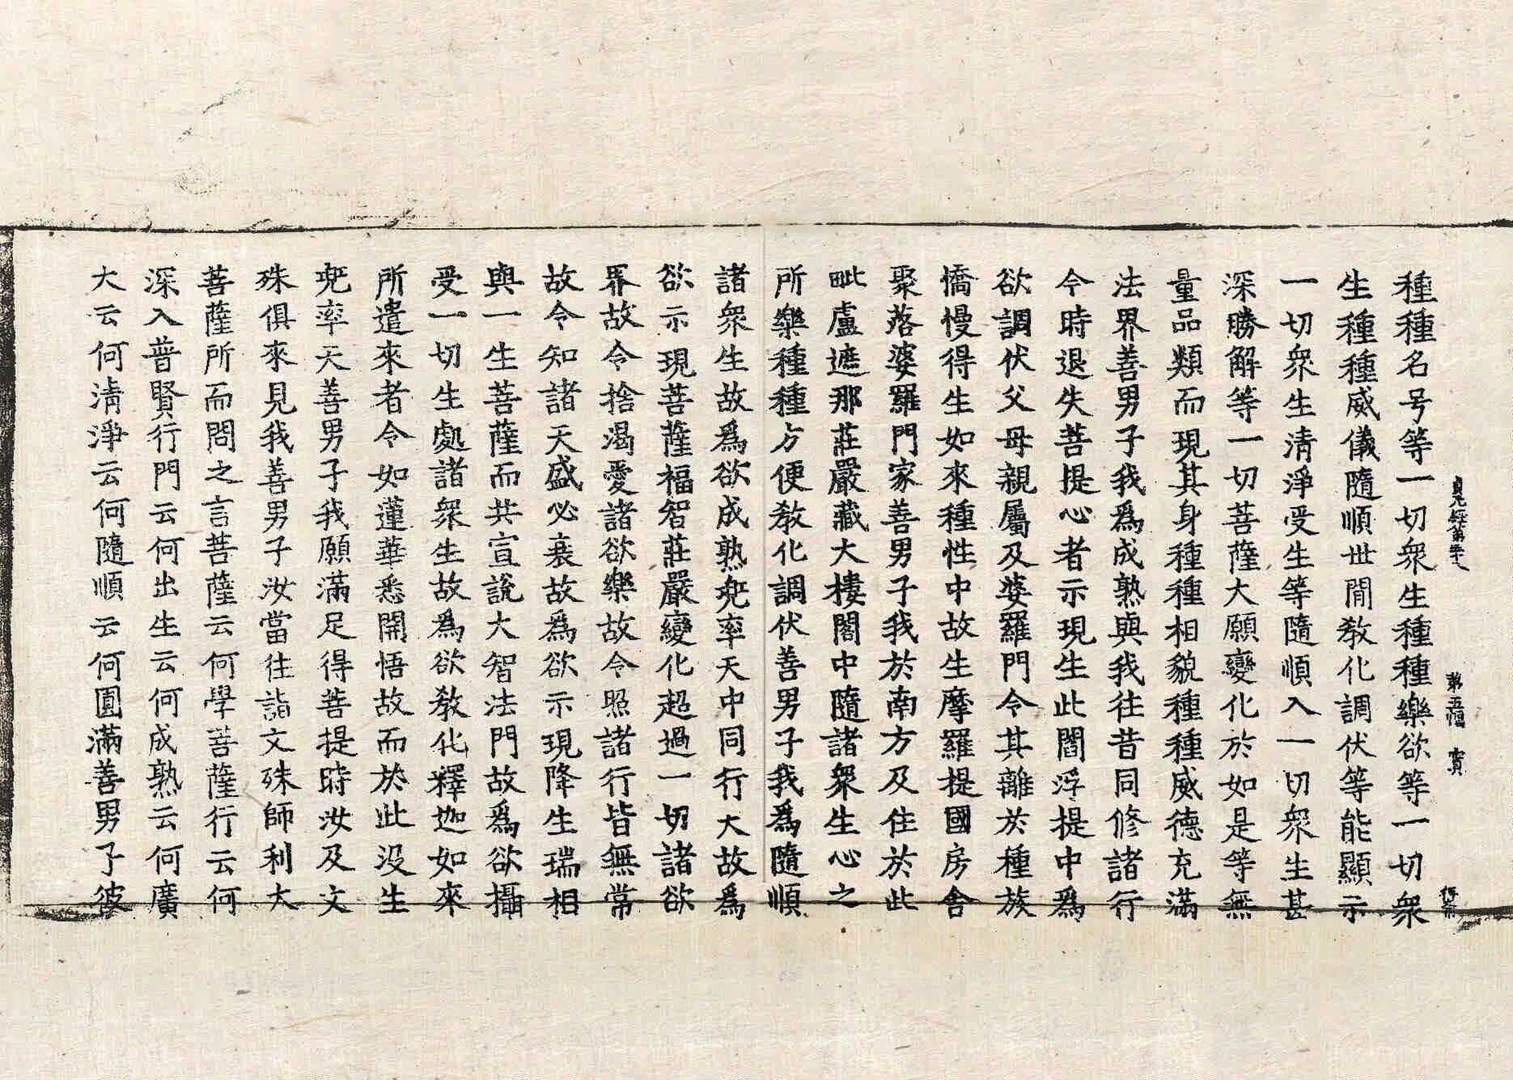 種種名号等一切衆生種種樂欲等一切衆
生種種威儀隨順世間敎化調伏等能顯示
一切衆生清淨受生等隨順入一切衆生甚
深勝解等一切菩薩大願變化於如是等無
量品類而現其身種種相貌種種威德充滿
法界善男子我爲成熟與我往昔同修諸行
今時退失菩提心者示現生此閻浮提中爲
欲調伏父母親屬及婆羅門令其離於種族
憍慢得生如來種性中故生摩羅提國房舎
聚落婆羅門家善男子我於南方及住於此
毗盧遮那莊嚴藏大樓閣中隨諸衆生心之
所樂種種方便敎化調伏善男子我爲隨順
諸衆生故爲欲成熟兜率天中同行大故爲
欲示現菩薩福智莊嚴變化超過一切諸欲
界故令捨渴愛諸欲樂故令照諸行皆無常
故令知諸天盛必衰故爲欲示現降生瑞相
與一生菩薩而共宣說大智法門故爲欲攝
受一切生處諸衆生故爲欲敎化釋迦如來
所遣來者令如蓮華悉開悟故而於此没生
兜率天善男子我願滿足得菩提時汝及文
殊俱來見我善男子汝當往詣文殊師利大
菩薩所而問之言菩薩云何學菩薩行云何
深入普賢行門云何出生云何成熟云何廣
大云何清淨云何隨順云何圓滿善男子彼